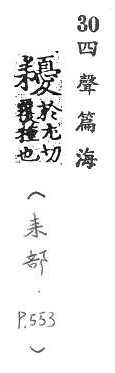 30四聲篇海
耰於尤切
覆種也
（耒部．P.553）